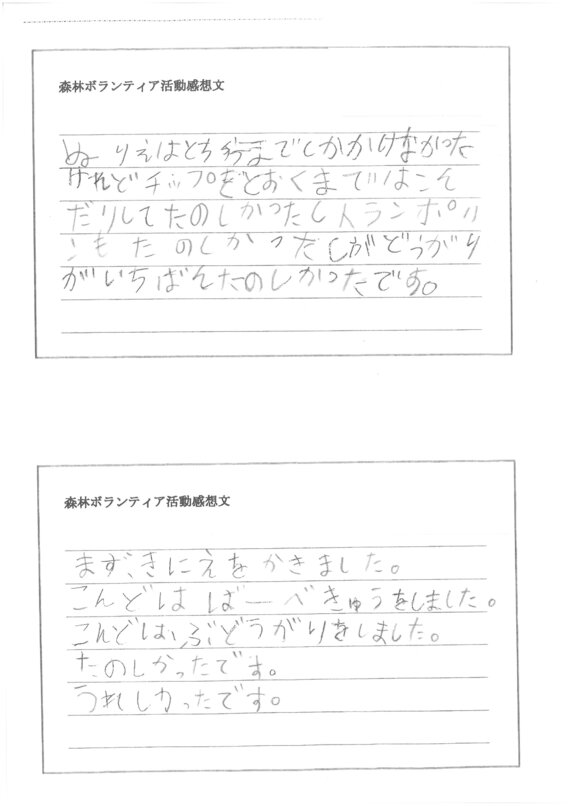 森林ボランティア活動感想文
ぬりえはとちゅうまでしかかけなかった
けれどチップをとおくまではこん
だりしてたのしかったしトランポリ
ンもたのしかったしがどうがり
がいちばんたのしかったです。
森林ボランティア活動感想文
まず、きにえをかきました。
こんどはばーべきゅうをしました。
こんどは、ぶどうがりをしました。
たのしかったです。
うれしかったです。